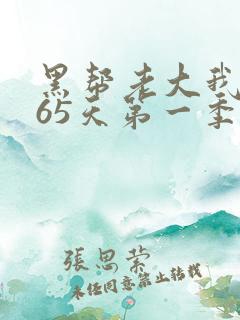 黑帮老大我
65天第一季
張思萦
未经同意禁止转载